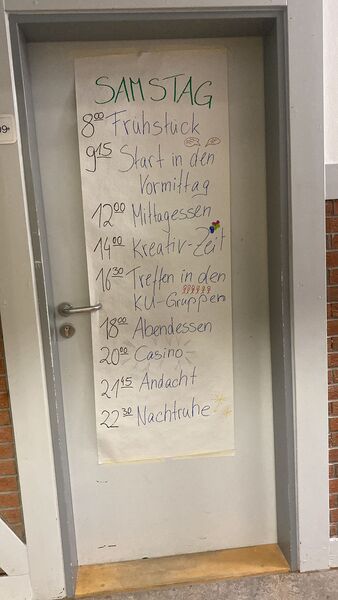 SAMSTAG
8⁰⁰ Frühstück
9¹⁵ Start in den
Vormittag
12⁰⁰ Mittagessen
14⁰⁰ Kreativ-Zeit
16³⁰ Treffen in den
KU-Gruppen
18⁰⁰ Abendessen
20⁰⁰ Casino-
21⁴⁵ Andacht
22³⁰ Nachtruhe